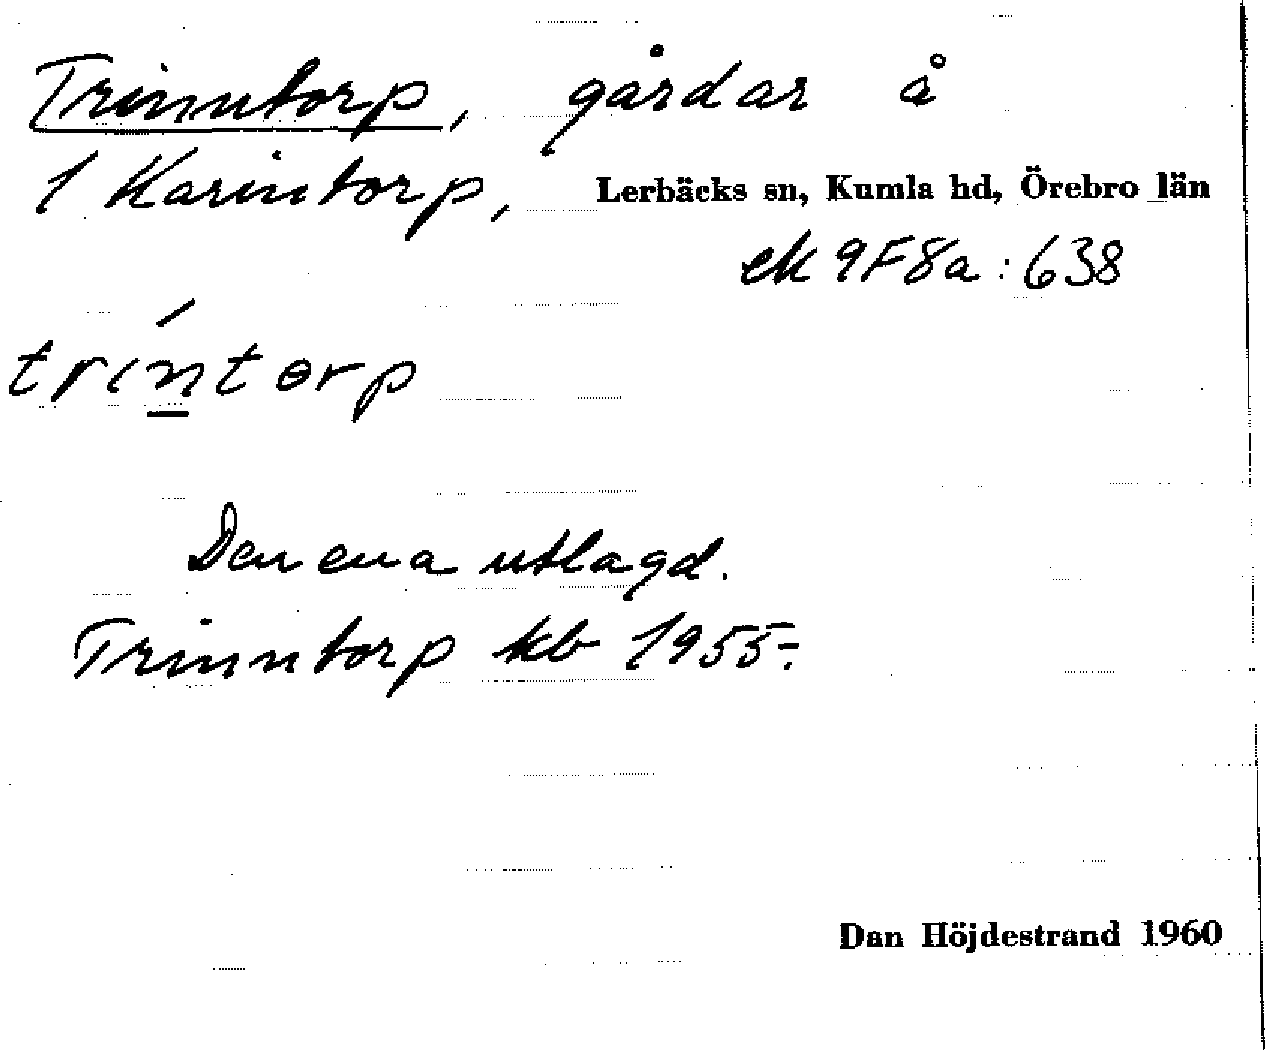 Trinntorp, gårdar å
1 Karintorp, Lerbäcks sn, Kumla hd, Örebro län
ek 9F8a:638
tríntorp
Den ena utlagd.
Trinntorp kb 1955-.
Dan Höjdestrand 1960